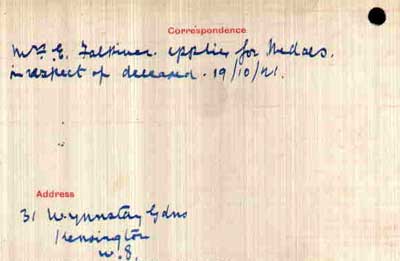 Correspondence
Mrs E. Falkiner. applies for Medals.
in respect of deceased. 19/10/21.
Address
31 Wynnstay Gdns
Kensington
W.8.